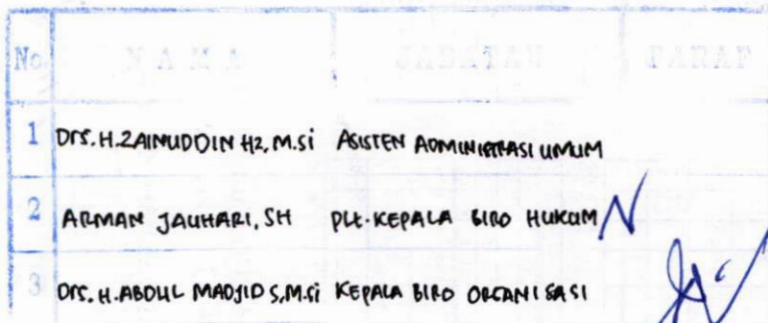 No NAMA JABATAN PARAF
1 Drs. H. ZAINUDDIN HZ, M.Si ASISTEN ADMINISTRASI UMUM
2 ARMAN JAUHARI, SH PLt. KEPALA BIRO HUKUM
3 Drs. H. ABDUL MADJID S, M.Si KEPALA BIRO ORGANISASI